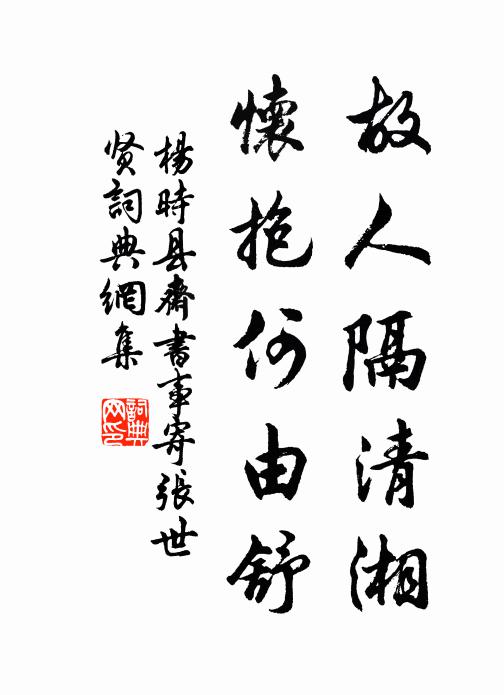 故人隔清湘
懷抱何由舒
楊時县齋書事寄張世
贤詞典網集
詞典
网印